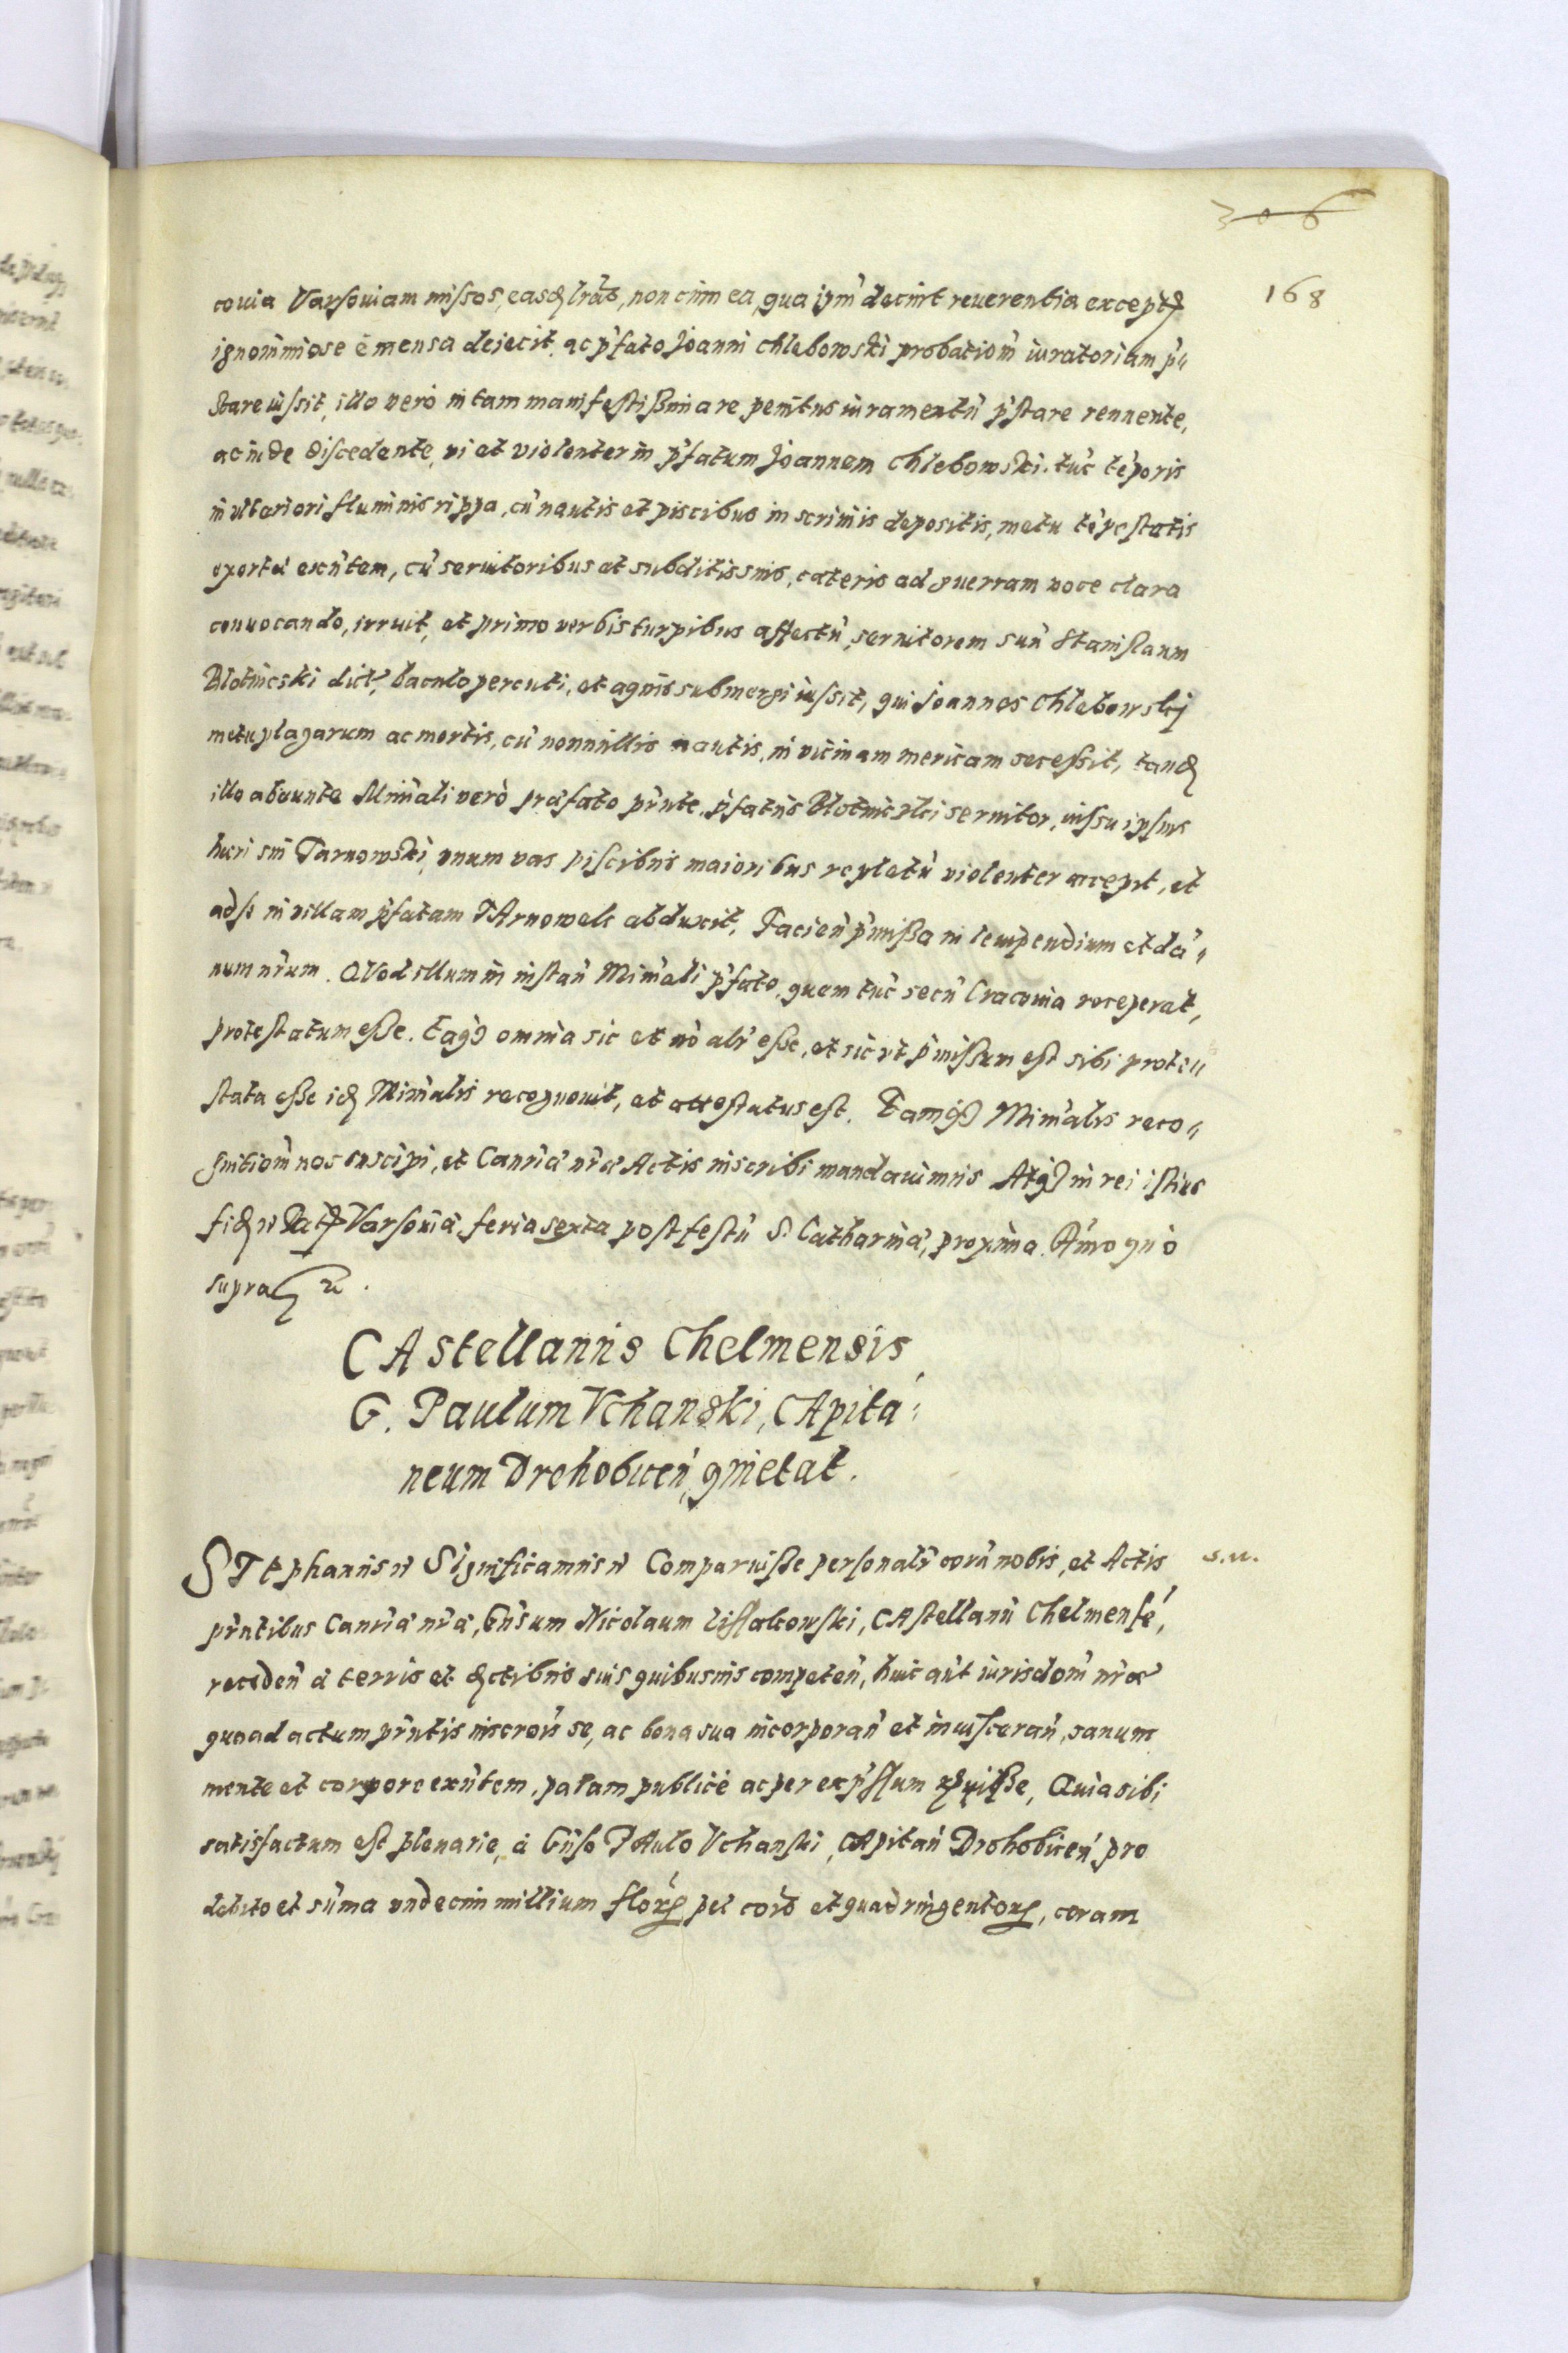 306
168
couia Varsouiam missos, easq lrãs, non cum ea, qua ipm̃ decuit reuerentia except
ignominiose è mensa deiecit, ac p̃fato Joanni Chlebowski probatiom̃ iuratoriam p̃-
stare iussit, illo verò in tam manifestissima re penitus iuramentũ p̃stare rennente,
ac inde discedente, vi et violenter in p̃fatum Joannem Chlebowski, tũc tẽporis
in vlteriori fluminis rippa, cũ nautis et piscibus in scriniis depositis, metu tẽpestatis
exortæ exñtem, cũ seruitoribus et subditis suis, cæteris ad guerram voce clara
conuocando, irruit, et primo verbis turpibus affectũ, seruitorem suũ Stanislaum
Blotnicski dict, baculo percuti, et aquis submergi iussit, qui Joannes Chlebowskj
metu plagarum ac mortis, cũ nonnullis nautis, in vicinam mericam secessit, tandẽ
illo abeunte Minr̃ali verò præfato pr̃nte, p̃fatus Blotnicski seruitor, iussu ipsius
heri sui Tarnowski, vnum vas piscibus maioribus repletũ violenter accepit, et
ad se in villam p̃fatam TArnowek abduxit, Facieñ p̃missa in leuipendium et dã-
num nr̃um. QVod illum in instañ Minr̃ali p̃fato, quem tũc secũ Cracouia receperat,
protestatum esse. Eaq3 omnia sic et nõ alr̃ esse, et sic ut p̃missum est sibi prote-
stata esse idẽ Minr̃alis recognouit, et attestatus est. Eamq3 Minr̃alis reco-
gnitiom̃ nos suscipi, et Canr̃iæ nr̃æ Actis inscribi mandauimus Atq3 in rei istius
fidẽ Dat Varsouiæ feria sexta post festũ S. Catharinæ, proxima. Anno quo
supra
CAstellanus Chelmensis,
G. Paulum Vchanski, CApita-
neum Drohobiceñ, quietat.
STephanus Significamus Comparuisse personalr̃ corã nobis, et Actis
s.u.
pr̃ntibus Canr̃iæ nr̃æ, Gñsum Nicolaum Lissakowski, CAstellanũ Chelmensẽ,
recedeñ à terris et suis quibusuis competeñ, huic aũt iurisdom̃ nr̃æ
quoad actum pr̃ntis inscrõis se, ac bona sua incorporañ et inuisceran̄, sanum
mente et corpore exñtem, palam publicè ac per exp̃ssum Quia sibi
satisfactum est plenarie, à Gñso PAulo Vchanski, CApitañ Drohobiceñ pro
debito et sũma vndecim millium florx pec et quadringentorx, coram